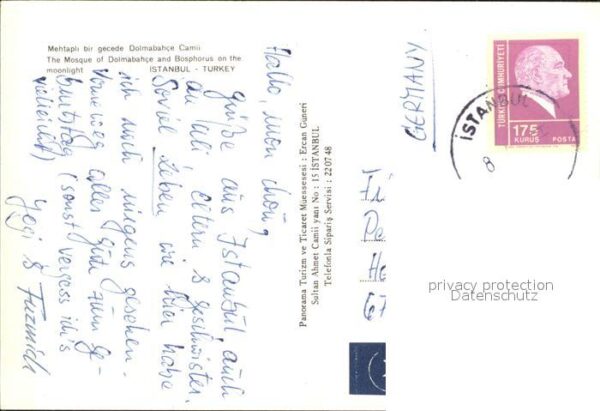 Mehtaplı bir gecede Dolmabahçe Camii
The Mosque of Dolmabahçe and Bosphorus on the
moonlight ISTANBUL - TURKEY
Hallo, mon
Grüße aus Istanbul, auch
an Uli, Eltern & Geschwister.
Soviel Leben wie hier habe
ich noch nirgens gesehen.
Vorneweg alles gute zum Ge-
burtstag (sonst vergess ich's
vielleicht)
&
Panorama Turizm ve Ticaret Müessesesi : Ercan Güneri
Sultan Ahmet Camii yanı No : 15 İSTANBUL
Telefonla Sipariş Servisi : 22 07 48
GERMANY
TÜRKİYE CUMHURİYETİ
175
KURUŞ POSTA
İSTANBUL
8
privacy protection
Datenschutz